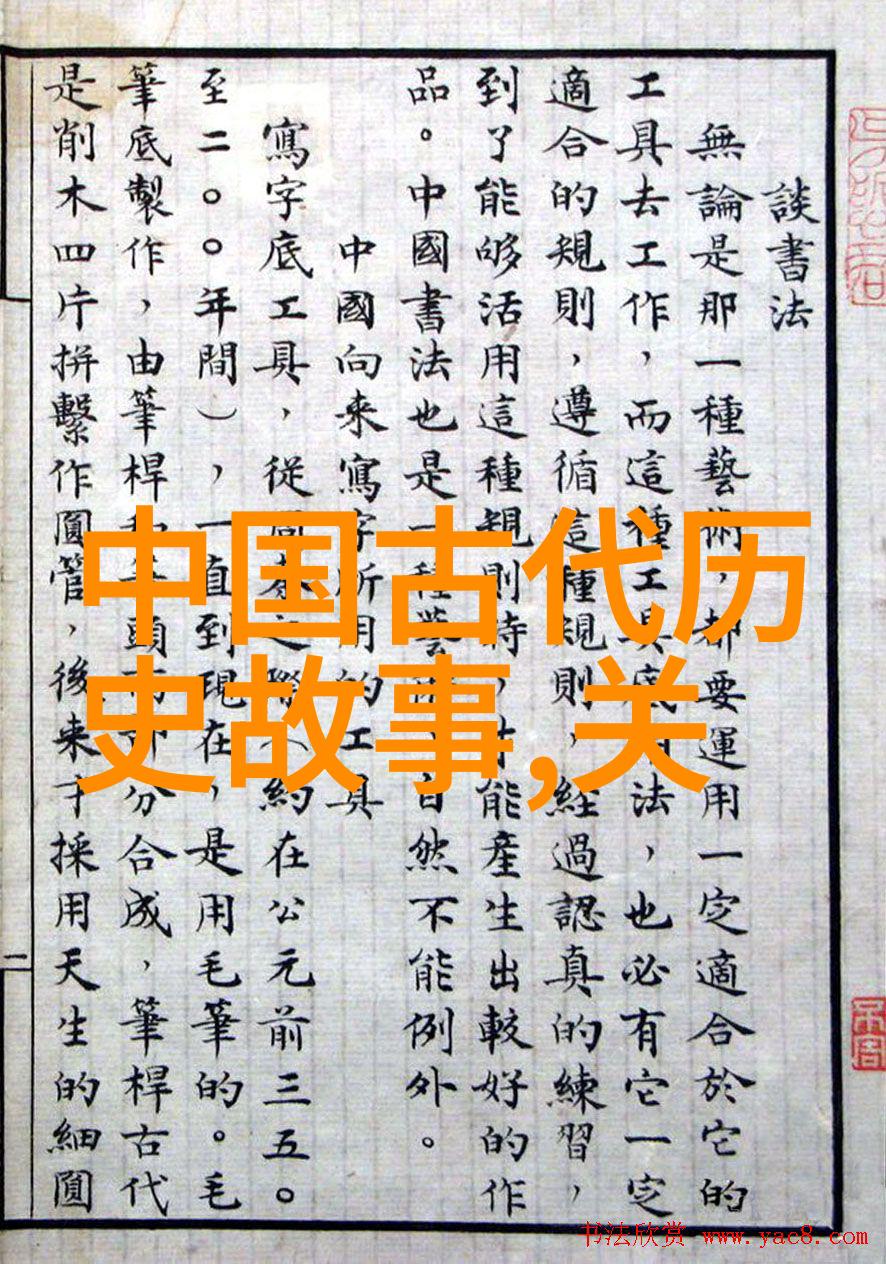 談書法
無論是那一種藝術，都要運用一定適合於它的
工具去工作，而這種工具底法，也必有它一定
適合的規則，遵循這種規則，經過認真的練習，
到了能够活用這種規則時，才能產生出較好的作
品。中國書法也是一種藝術，自然不能例外。
中國向來寫字所用的工具
寫字底工具，從周末之際（約在公元前三五〇
至二〇〇年間），一直到現在，是用毛筆的。毛
筆底製作，由筆桿和筆頭兩部分合成，筆桿古代
是削木四片拼繫作圓管，後來才採用天生的細圓
二
中国古代历
史故事,关
书法欣赏 www.yac8.com